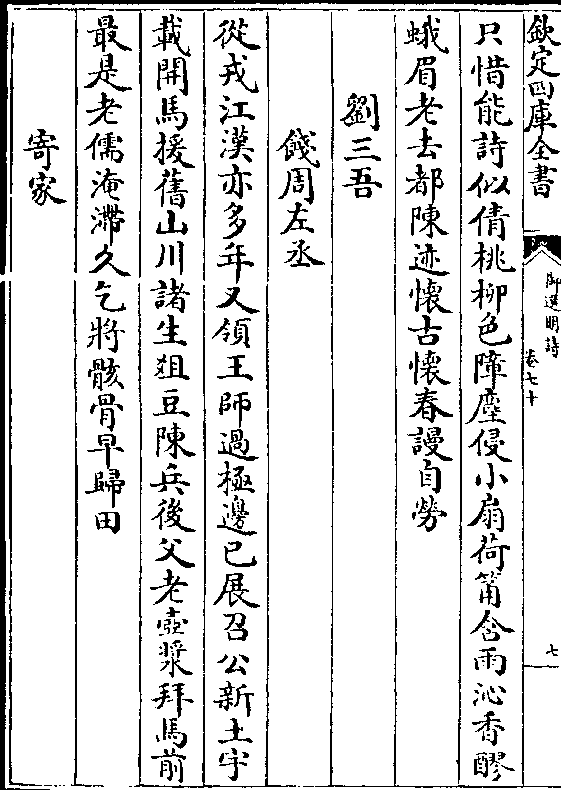 欽定四庫全書
御選明詩
卷七十
七
只惜能詩似倩桃柳色障塵侵小扇荷筩含雨沁香醪
蛾眉老去都陳迹懷古懷春謾自勞
劉三吾
餞周左丞
從戎江漢亦多年又領王師過極邊已展召公新土宇
載開馬援舊山川諸生俎豆陳兵後父老壺漿拜馬前
最是老儒淹滯久乞將骸骨早歸田
寄家